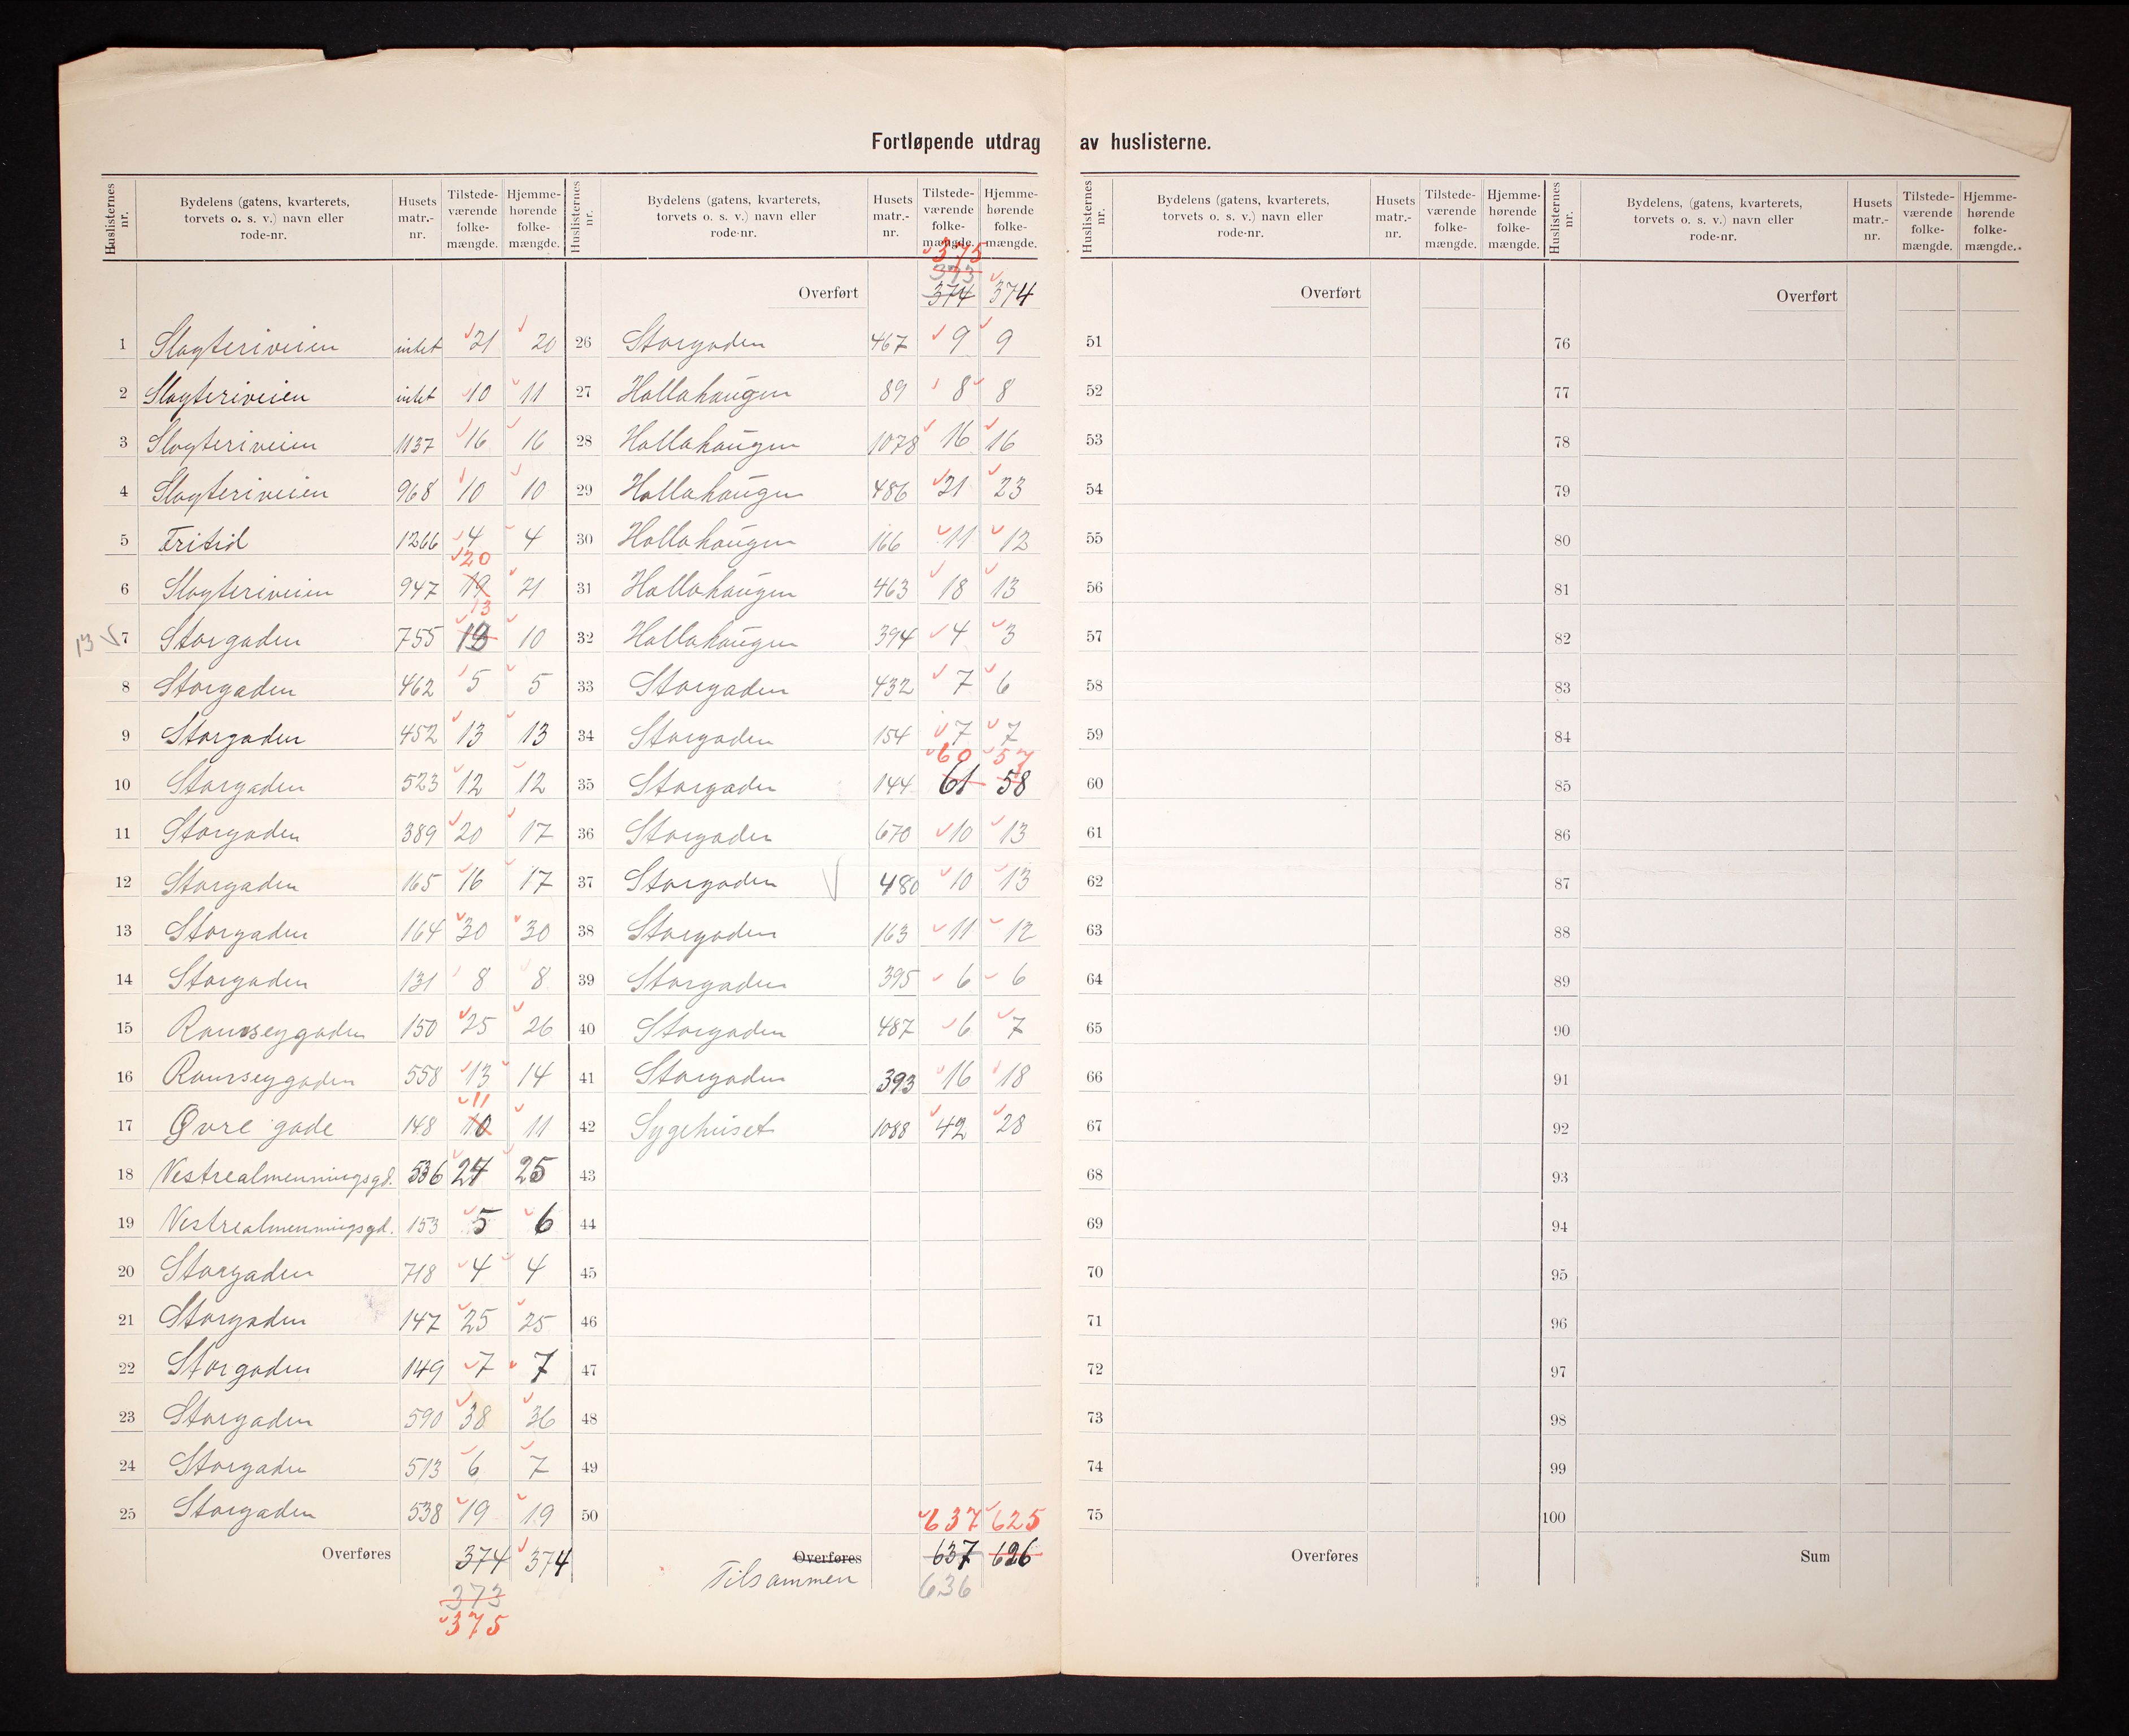 Fortløpende utdrag av huslisterne.
Huslisternes nr. Bydelens (gatens, kvarterets, torvets o. s. v.) navn eller rode-nr. Husets matr.-nr. Tilstede-værende folke-mængde. Hjemme-hørende folke-mængde.
1 Slagteriveien intet 21 20
2 Slagteriveien intet 10 11
3 Slagteriveien 1137 16 16
4 Slagteriveien 968 10 10
5 Fritid 1266 4 4
6 Slagteriveien 947 19 20 21
13 7 Storgaden 755 13 10
8 Storgaden 462 5 5
9 Storgaden 452 13 13
10 Storgaden 523 12 12
11 Storgaden 389 20 17
12 Storgaden 165 16 17
13 Storgaden 164 30 30
14 Storgaden 131 8 8
15 Ramseygaden 150 25 26
16 Ramseygaden 558 13 14
17 Øvre gade 148 10 11 11
18 Vestrealmenningsgd. 536 24 25
19 Vestrealmenningsgd. 153 5 6
20 Storgaden 718 4 4
21 Storgaden 147 25 25
22 Storgaden 149 7 7
23 Storgaden 590 38 36
24 Storgaden 513 6 7
25 Storgaden 538 19 19
Overføres 374 374
373
375
Huslisternes nr. Bydelens (gatens, kvarterets, torvets o. s. v.) navn eller rode-nr. Husets matr.-nr. Tilstede-værende folke-mængde. Hjemme-hørende folke-mængde.
375
373
Overført 374 374
26 Storgaden 467 9 9
27 Hollahaugen 89 8 8
28 Hollahaugen 1078 16 16
29 Hollahaugen 486 21 23
30 Hollahaugen 166 11 12
31 Hollahaugen 463 18 13
32 Hollahaugen 394 4 3
33 Storgaden 432 7 6
34 Storgaden 154 7 7
60 57
35 Storgaden 144 61 58
36 Storgaden 670 10 13
37 Storgaden 480 10 13
38 Storgaden 163 11 12
39 Storgaden 395 6 6
40 Storgaden 487 6 7
41 Storgaden 393 16 18
42 Sygehuset 1088 42 28
43
44
45
46
47
48
49
50 637 625
Overføres 637 626
Tilsammen 636
Huslisternes nr. Bydelens (gatens, kvarterets, torvets o. s. v.) navn eller rode-nr. Husets matr.-nr. Tilstede-værende folke-mængde. Hjemme-hørende folke-mængde.
Overført
51
52
53
54
55
56
57
58
59
60
61
62
63
64
65
66
67
68
69
70
71
72
73
74
75
Overføres
Huslisternes nr. Bydelens, (gatens, kvarterets, torvets o. s. v.) navn eller rode-nr. Husets matr.-nr. Tilstede-værende folke-mængde. Hjemme-hørende folke-mængde.
Overført
76
77
78
79
80
81
82
83
84
85
86
87
88
89
90
91
92
93
94
95
96
97
98
99
100
Sum